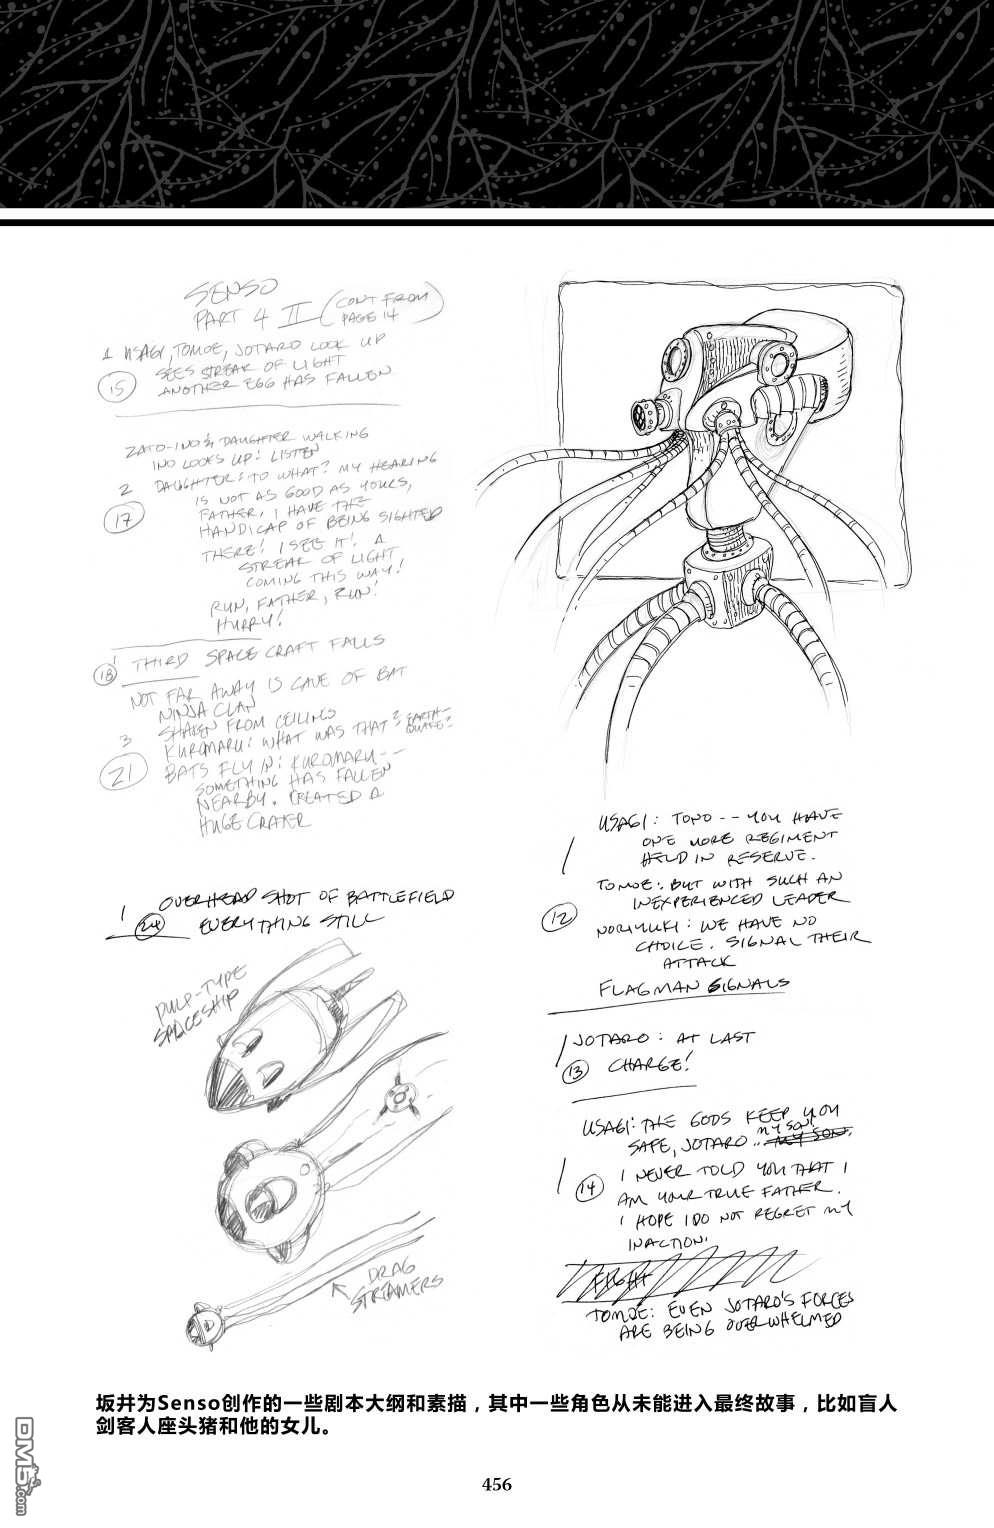 SENSO
PART 4 II (CONT FROM
PAGE 14)
1 USAGI, TOMOE, JOTARO LOOK UP
SEES STREAK OF LIGHT
15 ANOTHER EGG HAS FALLEN
ZATO-INO & DAUGHTER WALKING
INO LOOKS UP: LISTEN
2 DAUGHTER: TO WHAT? MY HEARING
17 IS NOT AS GOOD AS YOURS,
FATHER, I HAVE THE
HANDICAP OF BEING SIGHTED
THERE! I SEE IT! A
STREAK OF LIGHT
COMING THIS WAY!
RUN, FATHER, RUN!
HURRY!
1
18 THIRD SPACE CRAFT FALLS
NOT FAR AWAY IS CAVE OF BAT
NINJA CLAN
SHAKEN FROM CEILINGS
3 KUROMARU: WHAT WAS THAT? EARTH-
QUAKE?
21 BATS FLY IN: KUROMARU--
SOMETHING HAS FALLEN
NEARBY. CREATED A
HUGE CRATER
1 OVERHEAD SHOT OF BATTLEFIELD
24 EVERYTHING STILL
PULP-TYPE
SPACESHIP
DRAG
STREAMERS
USAGI: TONO -- YOU HAVE
1 ONE MORE REGIMENT
HELD IN RESERVE.
TOMOE: BUT WITH SUCH AN
INEXPERIENCED LEADER
12 NORIYUKI: WE HAVE NO
CHOICE. SIGNAL THEIR
ATTACK
FLAGMAN SIGNALS
1 JOTARO: AT LAST
13 CHARGE!
USAGI: THE GODS KEEP YOU
SAFE, JOTARO.. my son MY SON.
1 I NEVER TOLD YOU THAT I
14 AM YOUR TRUE FATHER.
I HOPE I DO NOT REGRET MY
INACTION.
FIGHT
TOMOE: EVEN JOTARO'S FORCES
ARE BEING OVERWHELMED
坂井为Senso创作的一些剧本大纲和素描，其中一些角色从未能进入最终故事，比如盲人
剑客人座头猪和他的女儿。
456
DM5.com